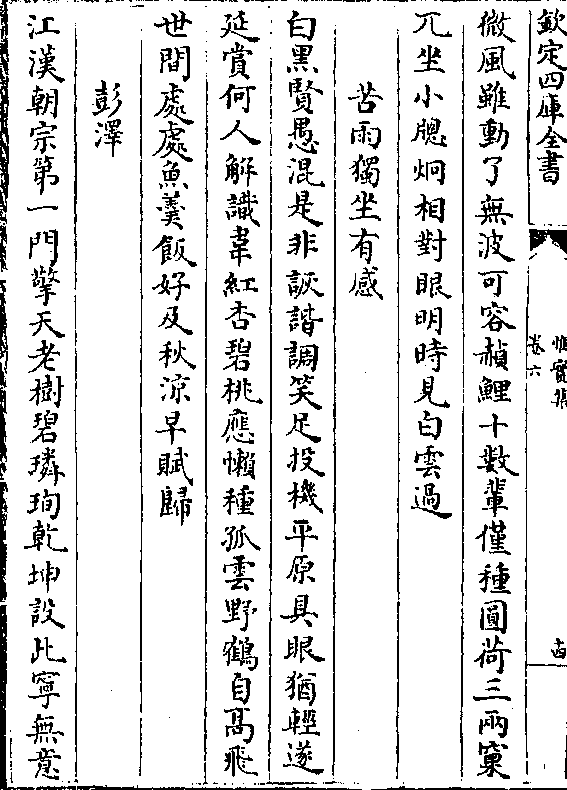 欽定四庫全書
卷六
微風雖動了無波可容赬鯉十數輩僅種圓荷三兩窠
兀坐小牕炯相對眼明時見白雲過
苦雨獨坐有感
白黑賢愚混是非詼諧調笑足投機平原具眼猶輕遂
延賞何人解識韋紅杏碧桃應懶種孤雲野鶴自高飛
世間處處魚羮飯好及秋涼早賦歸
彭澤
江漢朝宗第一門擎天老樹碧璘珣乾坤設此寧無意